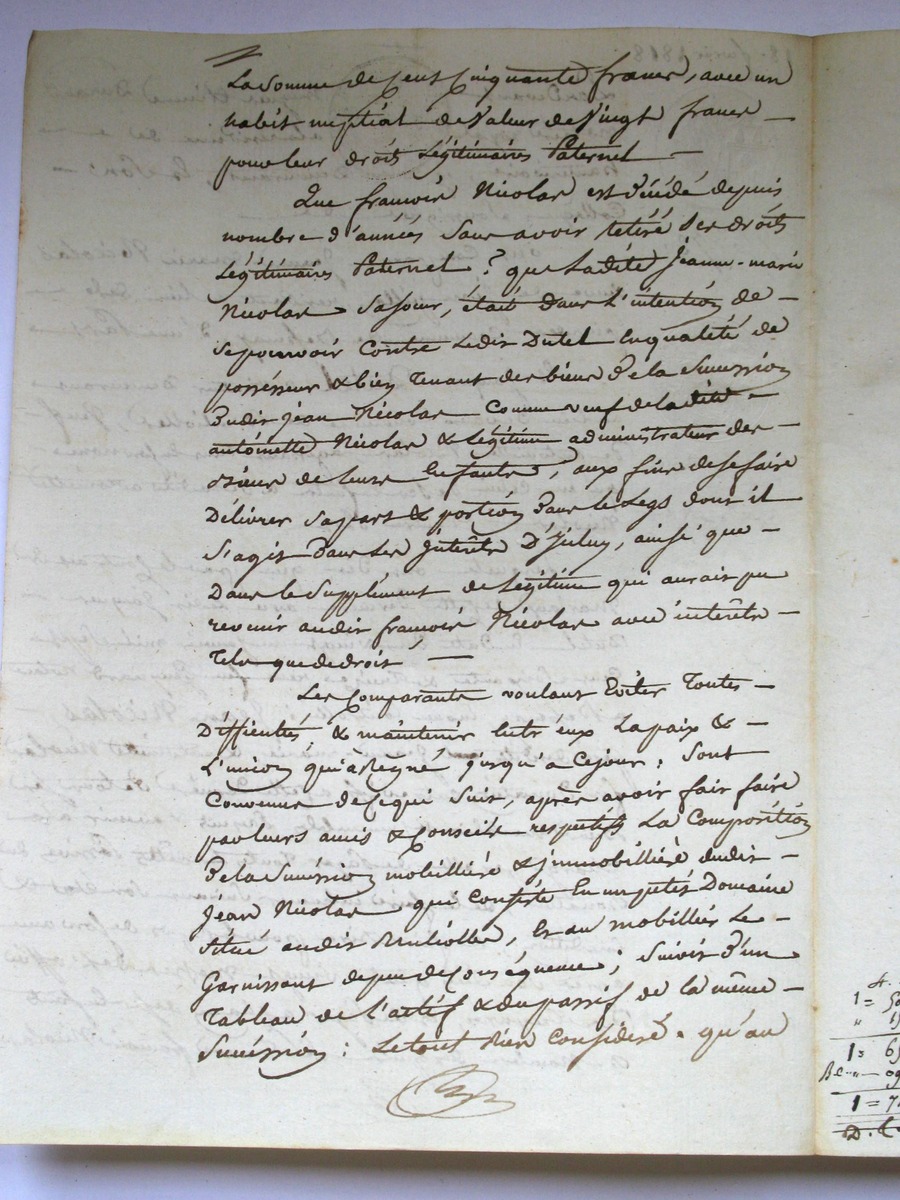 La somme de Cent Cinquante francs, avec un
habit nuptial de valeur de Vingt francs —
pour leur droits Légitimaires Paternel —
Que françois Nicolas est décédé depuis
nombre d'années sans avoir retiré Ses droits
Légitimaires Paternel ? que Ladite Jeanne-marie
Nicolas Sa soeur, était dans L'intention de —
se pourvoir Contre Ledit Dutel En qualité de
possesseur & bien Tenant des biens De la Succession
Dudit jean Nicolas Comme veuf de la dite
antoinette Nicolas & Légitime administrateur des —
biens de leurs Enfants, aux fins de se faire
Délivrer Sa part & portion Dans le Legs dont il
S'agit Dans Les Intérêts D'Iceluy, ainsi que —
Dans le Supplément de Légitime qui aurait pu
revenir audit françois Nicolas avec intérêts —
Tels que de droit —
Les Comparants voulant Eviter Toutes —
Difficultés & maintenir Entr'eux La paix & —
L'union qui a Régné jusqu'à Ce jour, Sont
Convenus de Ce qui Suit, après avoir fait faire
par leurs amis & Conseils respectifs La Composition
De la Succession mobilliére & jmmobilliére dudit —
Jean Nicolas qui Consiste En un petit Domaine
Situé audit, Et au mobillier Le —
Garnissant de peu de Conséquence ; Suivit D'un
Tableau de L'actif & du passif de la même —
Succession : Le tout Bien Considéré qu'au
1 =
1 =
1 =